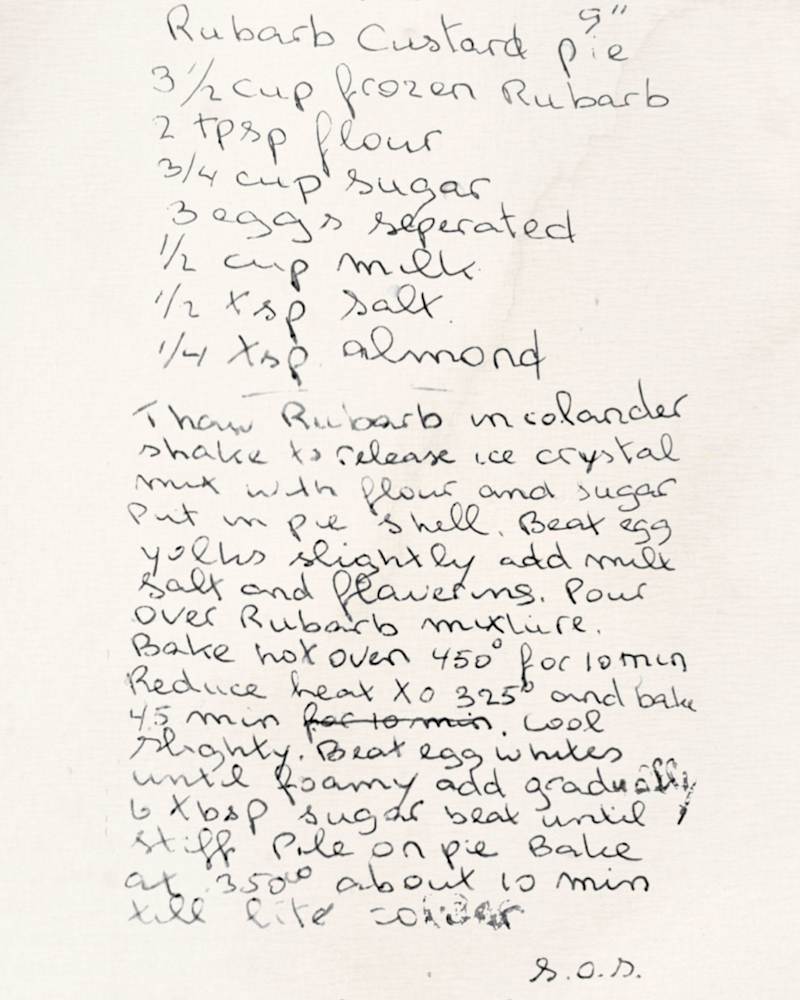 Rubarb Custard pie 9"
3 1/2 cup frozen Rubarb
2 tpsp flour
3/4 cup sugar
3 eggs seperated
1/2 cup milk
1/2 tsp salt
1/4 tsp almond
Thaw Rubarb in colander
shake to release ice crystal
mix with flour and sugar
Put in pie shell. Beat egg
yolks slightly add milk
salt and flavering. Pour
over Rubarb mixture.
Bake hot oven 450° for 10 min
Reduce heat to 325° and bake
45 min for 10 min. Cool
slighty. Beat egg whites
until foamy add gradually
6 tbsp sugar beat until
stiff Pile on pie Bake
at 350° about 10 min
till lite
S.O.S.